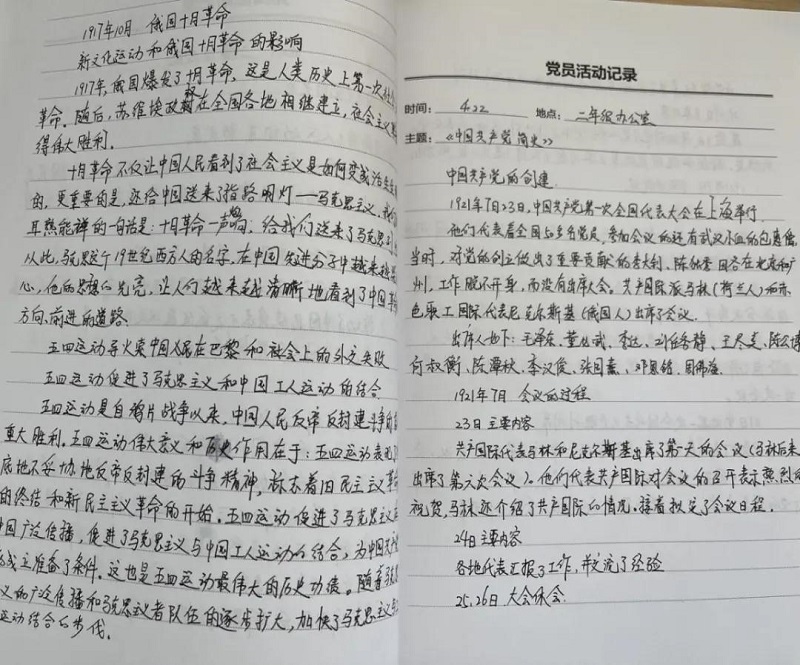 1917年10月 俄国十月革命
新文化运动和俄国十月革命的影响
1917年,俄国爆发了十月革命,这是人类历史上第一次社
革命。随后,苏维埃政权在全国各地相继建立,社会主义
得伟大胜利。
十月革命不仅让中国人民看到了社会主义是如何变成
的,更重要的是,还给中国送来了指路明灯——马克思主义,
耳熟能祥的一句话是:十月革命一声炮响,给我们送来了马克思
从此,马克思这个19世纪西方人的名字,在中国先进分子中越来越
心,他的思想的光亮,让人们越来越清晰地看到了中国
方向、前进的道路.
五四运动导火索中国人民在巴黎和社会上的外交失败
五四运动促进了马克思主义和中国工人运动的结合
五四运动是自鸦片战争以来,中国人民反帝反封建斗争的
重大胜利。五四运动伟大意义和历史作用在于:五四运动表现了
底地不妥协地反帝反封建的斗争精神,标志着旧民主主义革
的终结和新民主主义革命的开始。五四运动促进了马克思主义
中国广泛传播,促进了马克思主义与中国工人运动的结合,为中国
成立准备了条件。这也是五四运动最伟大的历史功绩。随着
义的广泛传播和马克思主义者队伍的逐步扩大,加快了马克思主义与
运动结合的步伐.
党员活动记录
时间: 4.22 地点: 二年级办公室
主题: 《中国共产党简史》
中国共产党的创建.
1921年7月23日,中国共产党第一次全国代表大会在上海举行.
他们代表着全国50多名党员,参加会议的还有武汉小组的包惠僧
当时,对党的创立做出了重要贡献的李大钊、陈独秀因各在北京和广
州,工作脱不开身,而没有出席大会。共产国际派马林(荷兰人)和赤
色职工国际代表尼克尔斯基(俄国人)出席了会议.
出席人如下:毛泽东、董必武、李达、刘任静、王尽美、陈公博
何叔衡、陈潭秋、李汉俊、张国焘、邓恩铭、周佛海.
1921年7月 会议的过程
23日 主要内容
共产国际代表马林和尼克尔斯基出席了第一天的会议(马林后来
出席了第六次会议)。他们代表共产国际对会议的召开表示热烈的
祝贺,马林还介绍了共产国际的情况。接着拟定了会议日程.
24日 主要内容
各地代表汇报了工作,并交流了经验
25、26日 大会休会.